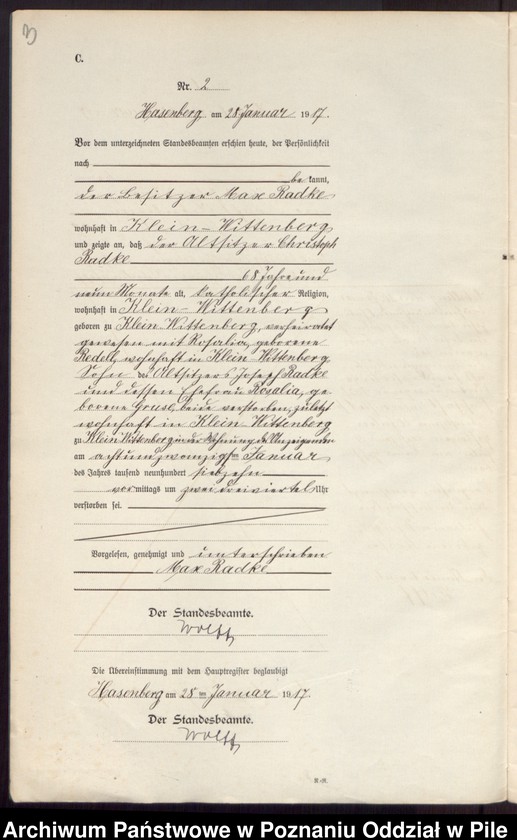 C.
Nr. 2
Hasenberg am 28 Januar 1917.
Vor dem unterzeichneten Standesbeamten erschien heute, der Persönlichkeit
nach
be kannt,
der Besitzer Max Radke
wohnhaft in Klein-Wittenberg
und zeigte an, daß der Altsitzer Christoph
Radke
68 Jahre und
neun Monate alt, katholischer Religion,
wohnhaft in Klein-Wittenberg
geboren zu Klein-Wittenberg, verheiratet
gewesen mit Rosalia, geborene
Redell, wohnhaft in Klein Wittenberg
Sohn des Altsitzers Joseph Radke
und dessen Ehefrau Rosalia, ge
borene Greusel, beide verstorben, zuletzt
wohnhaft in Klein-Wittenberg
zu Klein Wittenberg in der Wohnung des Anzeigenden
am achtundzwanzigsten Januar
des Jahres tausend neunhundert siebzehn
vormittags um zwei dreiviertel Uhr
verstorben sei.
Vorgelesen, genehmigt und unterschrieben
Max Radke
Der Standesbeamte.
Wolff
Die Übereinstimmung mit dem Hauptregister beglaubigt
Hasenberg am 28 ten Januar 1917.
Der Standesbeamte.
Wolff
Archiwum Państwowe w Poznaniu Oddział w Pile